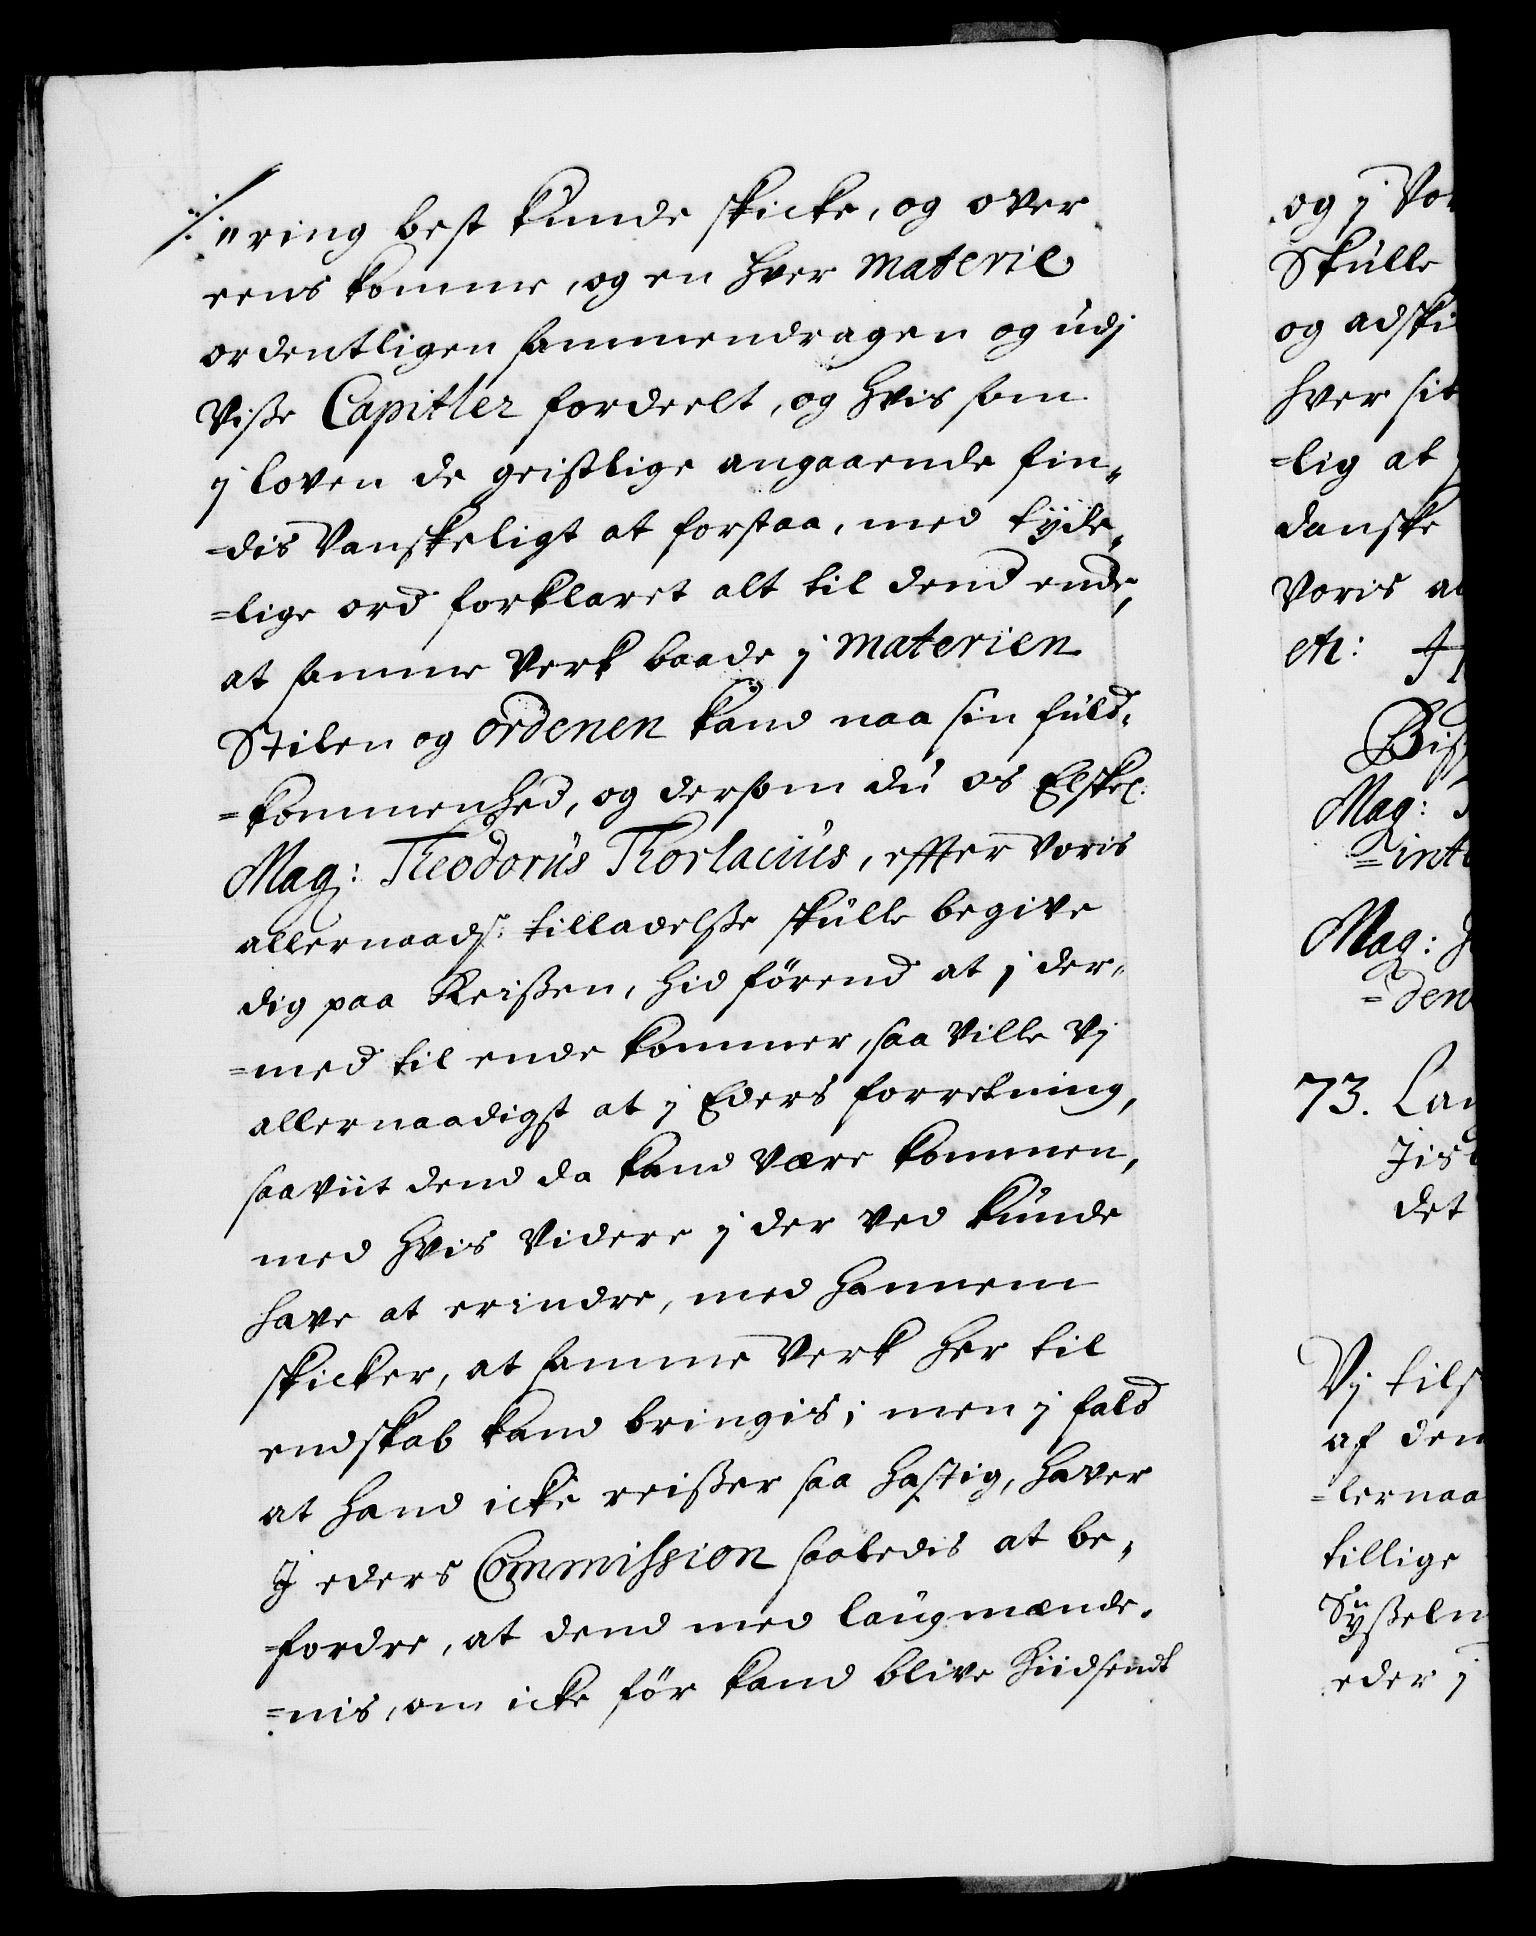 ⁒ "ring best kunde skicke, og over
eens komme, og en hver materie
ordentligen sammendragen og udj
Visse Capitler fordeelt, og hvis som
j loven de geistlige angaaende fin„
=dis Vanskeligt at forstaa, med tyde„
=lige ord forklaret alt til dend ende,
at samme Verk baade j materien
Stilen og ordenen kand naa sin fuld„
=kommenhed, og dersom du os Elskel:
Mag: Theodorus Thorlacius, effter Voris
allernaads: tilladelsse skulle begive
dig paa Reissen, hid førend at j der„
=med til ende kommer, saa Ville Vj
allernaadigst at j Eders forretning,
saaviit dend da kand Være kommen,
med hvis Videre j der Ved kunde
have at erindre, med hannem
skicker, at samme Verk her til
endskab kand bringis; men j fald
at hand icke reisser saa hastig, haver
J eders Commission saaledis at be„
=fordre, at dend med laugmænde„
=nis, om icke før kand blive hiidsendt
og j Vor
Skulle
og adski
hver sit
=lig at
danske
Voris al
etc:
Bis
Mag:
=int
Mag:
=den
73. Lan
Jisl
det
Vj tils
af dem
=lernaa
tillige
Sysselm
eder j